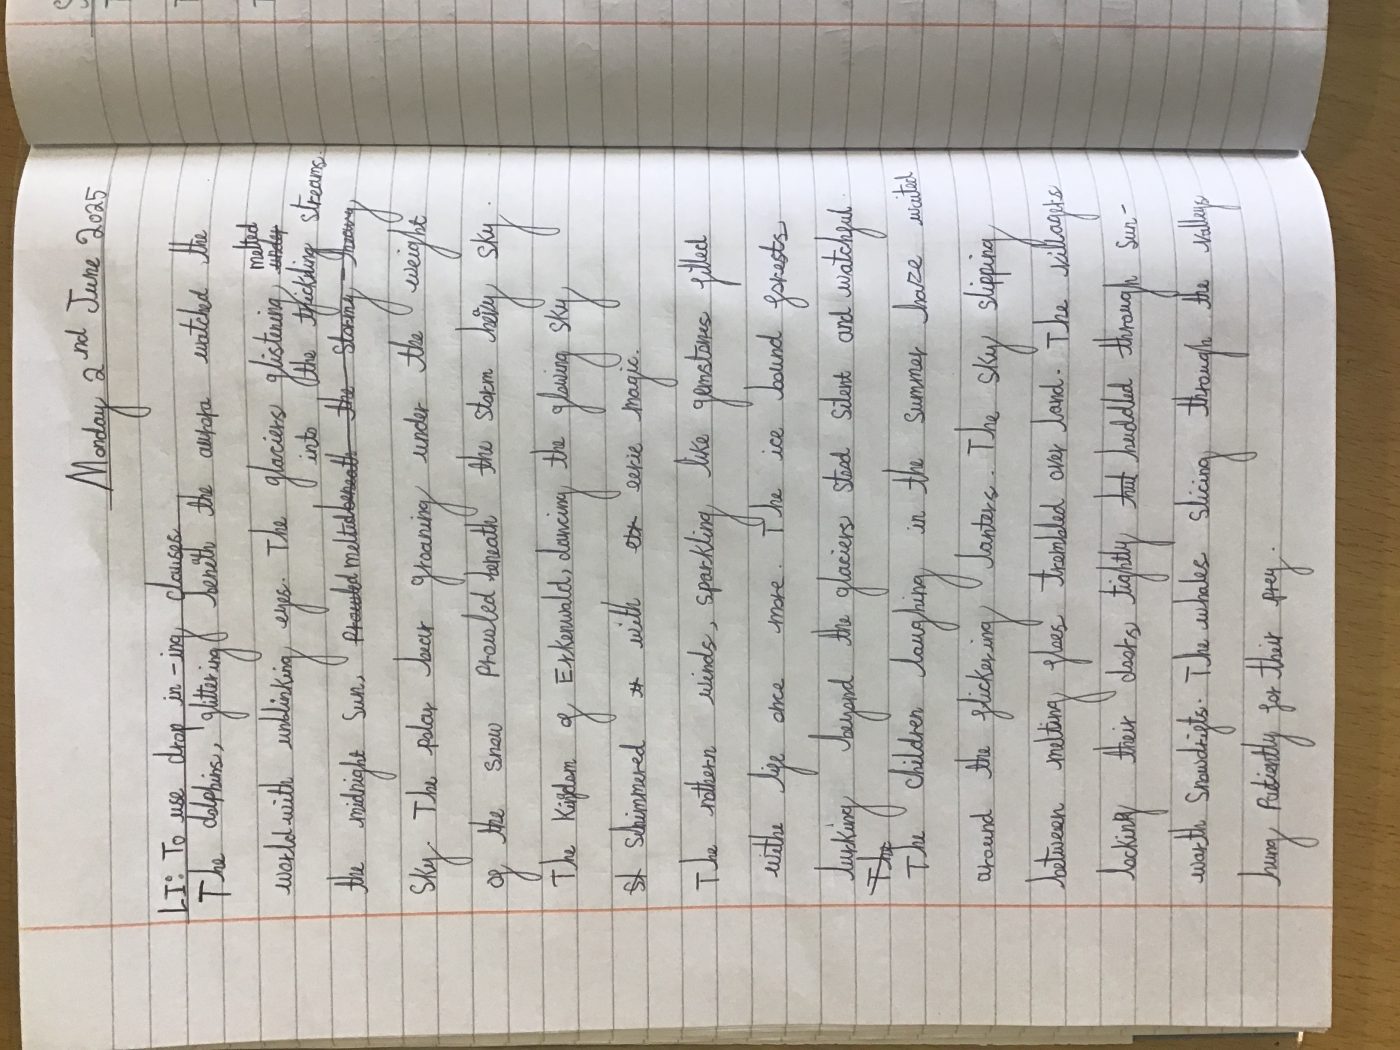 Monday 2nd June 2025
LI: To use drop in -ing clauses
The dolphins, glittering beneath the aurora watched the
world with unblinking eyes. The glaciers glistening, melted
into the trickling streams.
the midnight Sun,
Sky. The polar bear groaning under the weight
of the snow prowled beneath the Storm heavy sky.
The Kigdom of Erkenwald, dancing the glowing sky
Shimmered with eerie magic.
The nothern winds, sparkling like gemstones filled
withe life once more. The ice bound forests
lurking beyond the glaciers stood Silent and watchful.
The
The children laughing in the Summer haze waited
around the flickering lanters. The Sky slipping
between melting floes trembled over land. The villagers
locking their doors tightly but huddled through Sun-
warth Snowdrifts. The whales slicing through the Valleys
hung Patiently for their prey.